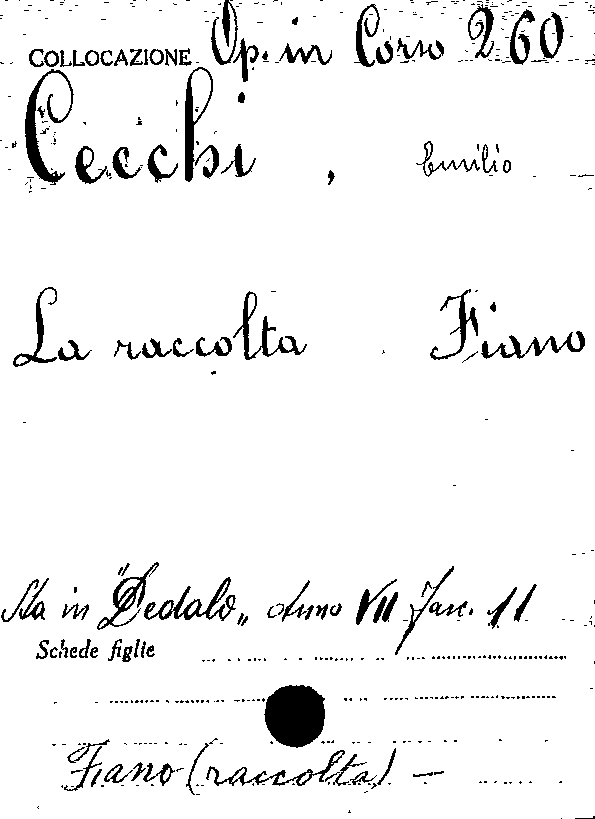 COLLOCAZIONE Op. in Corso 260
Cecchi, Emilio
La raccolta Fiano
Sta in "Dedalo" Anno VII Fasc. 11
Schede figlie
Fiano (raccolta) —